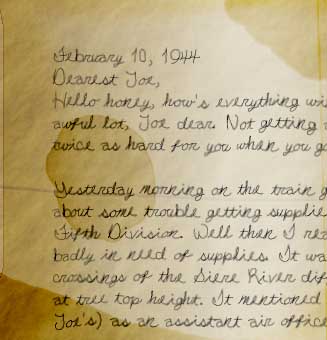 February 10, 1944
Dearest Joe,
Hello honey, how's everything wi
awful lot, Joe dear. Not getting
twice as hard for you when you go
Yesterday morning on the train g
about some trouble getting supplie
Fifth Division. Well then I rea
badly in need of supplies. It wa
crossings of the Siere River dif
at tree top height. It mentioned
Joe's) as an assistant air office